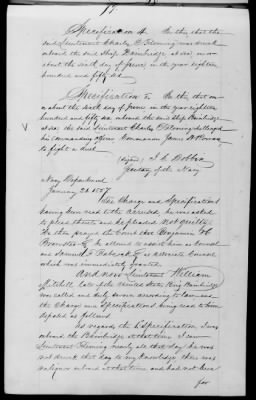 17.
Specification 4. In this that the
said Lieutenant Charles Fleming was drunk
onboard the said Ship Bainbridge at sea, on or
about the sixth day of June in the year eighteen
hundred and fifty six
Specification 5. In this, that on
or about the sixth day of June in the year eighteen
hundred and fifty six onboard the said Ship Bainbridge
at sea the said Lieutenant Charles Fleming challenged
his commanding officer Commander James
to fight a duel.
(signed) J. C. Dobbin
Secretary of the Navy
Navy Department
January 1857.
The Charge and Specifications
having been read to the accused, he was asked
to plead thereto and he pleaded Not Guilty.
He then prayed the Court that Benjamin
Esq. be allowed to assist him as Counsel
and Samuel Esq. as alternate Counsel
which was immediately granted.
And now Lieutenant William
Mitchell late of the United States Brig Bainbridge
was called and duly sworn according to law and
the Charge and Specifications being read to him
deposed as follows.
As regards the 1st Specification I was
onboard the Bainbridge at that time. I saw
Lieutenant Fleming nearly all that day he was
not drunk that day to my knowledge there was
no liquor onboard at that time and had not been
for